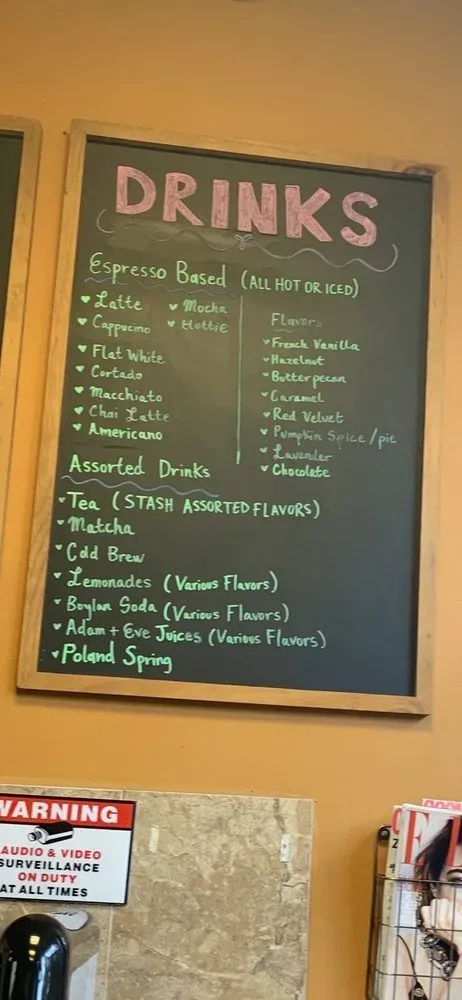 DRINKS
Espresso Based (ALL HOT OR ICED)
Latte
Cappucino
Flat White
Cortado
Macchiato
Chai Latte
Americano
Mocha
Hottie
Flavors
French Vanilla
Hazelnut
Butterpecan
Caramel
Red Velvet
Pumpkin Spice/pie
Lavender
Chocolate
Assorted Drinks
Tea (STASH ASSORTED FLAVORS)
Matcha
Cold Brew
Lemonades (Various Flavors)
Boylan Soda (Various Flavors)
Adam + Eve Juices (Various Flavors)
Poland Spring
WARNING
AUDIO & VIDEO
SURVEILLANCE
ON DUTY
AT ALL TIMES